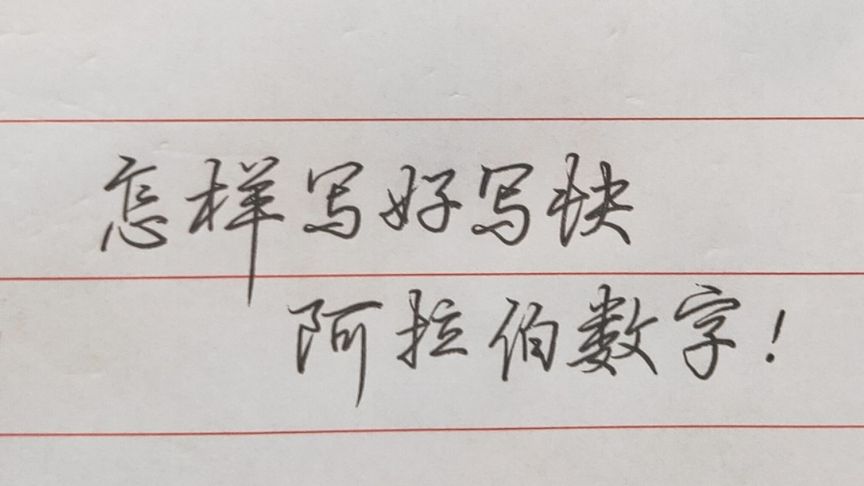 怎样写好写快
阿拉伯数字！